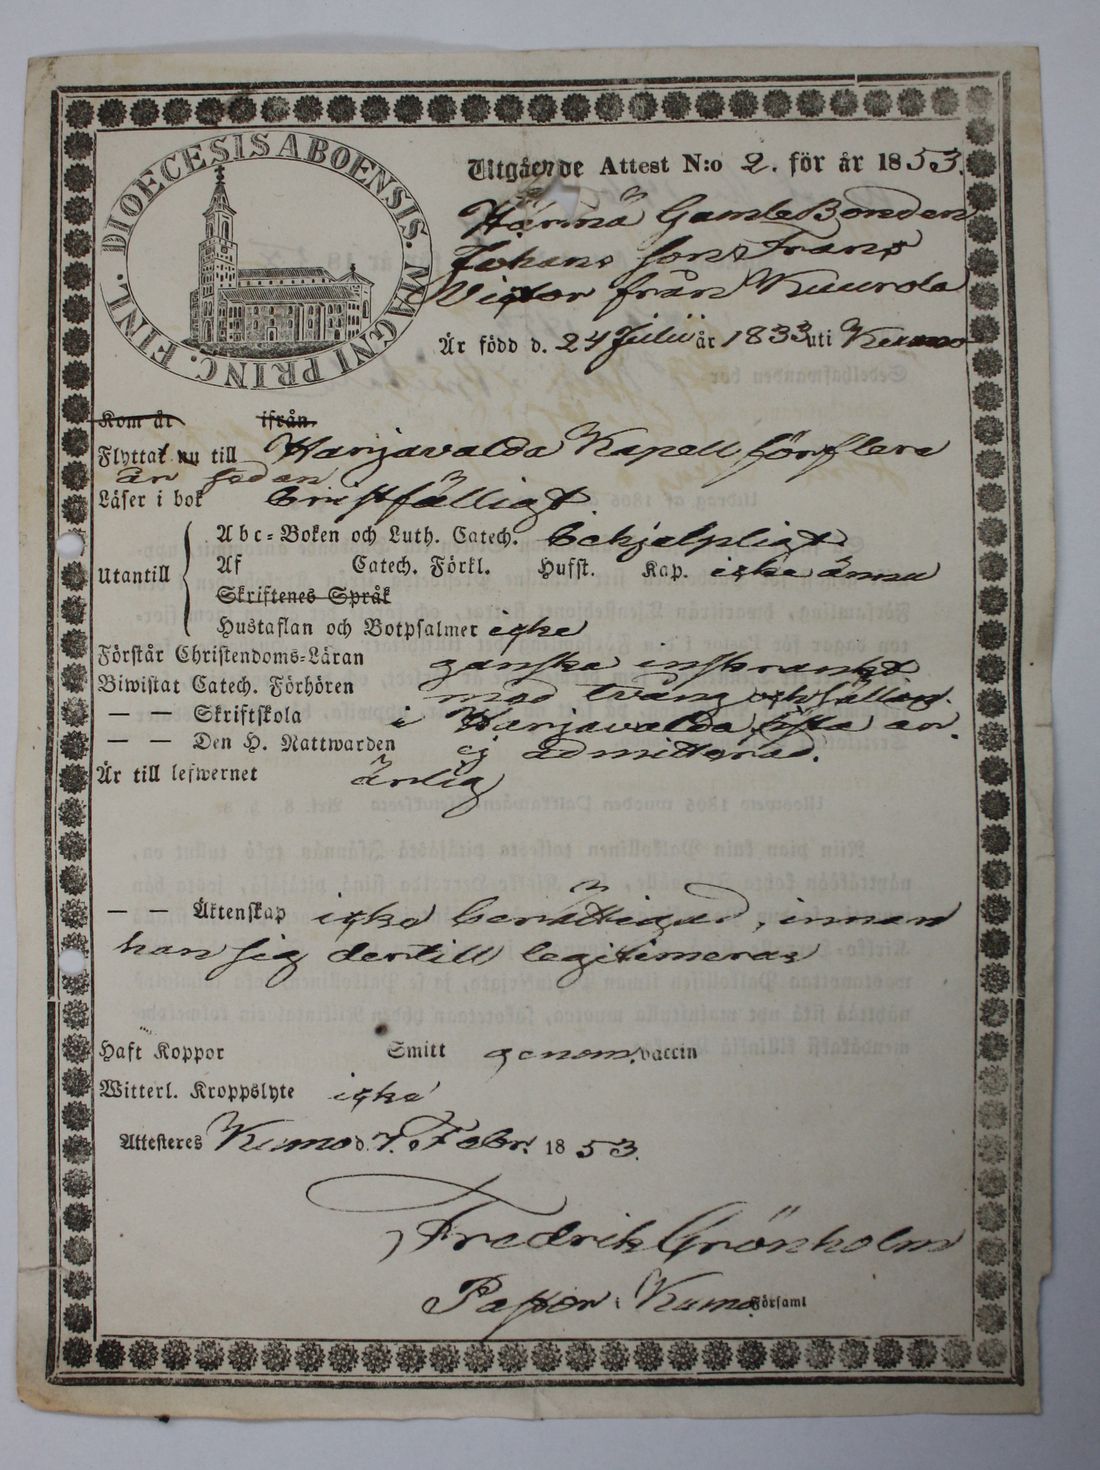 DIOECESIS ABOENSIS. MAGNI PRINC. FINL.
Utgående Attest N:o 2. för år 1853.
Gamla Bonden
Johans son Frans
Victor från Kuurola
Är född d. 24 Julii år 1833 uti Kumo
Kom år ifrån
Flyttat nu till Harjavalda Kapell för flera
år sedan
Läser i bok bristfälligt.
Utantill
Abc-Boken och Luth. Catech. behjelpligt
Af Catech. Förkl. Husst. Kap. icke ännu
Skriftenes Språk
Hustaflan och Botpsalmer icke
Förstår Christendoms-Läran ganska inskränkt
Biwistat Catech. Förhören med tvång och sällan.
— — Skriftskola i Harjavalda sista år.
— — Den H. Nattwarden ej admitterad.
Är till lefwernet ärlig
— — Äktenskap icke berättigad, innan
han sig dertill legitimerar
Haft Koppor Smitt genom vaccin
Witterl. Kroppslyte icke
Attesteres Kumo d. 7. Febr. 1853.
Fredrik Grönholm
Pastor i Kumo Församl